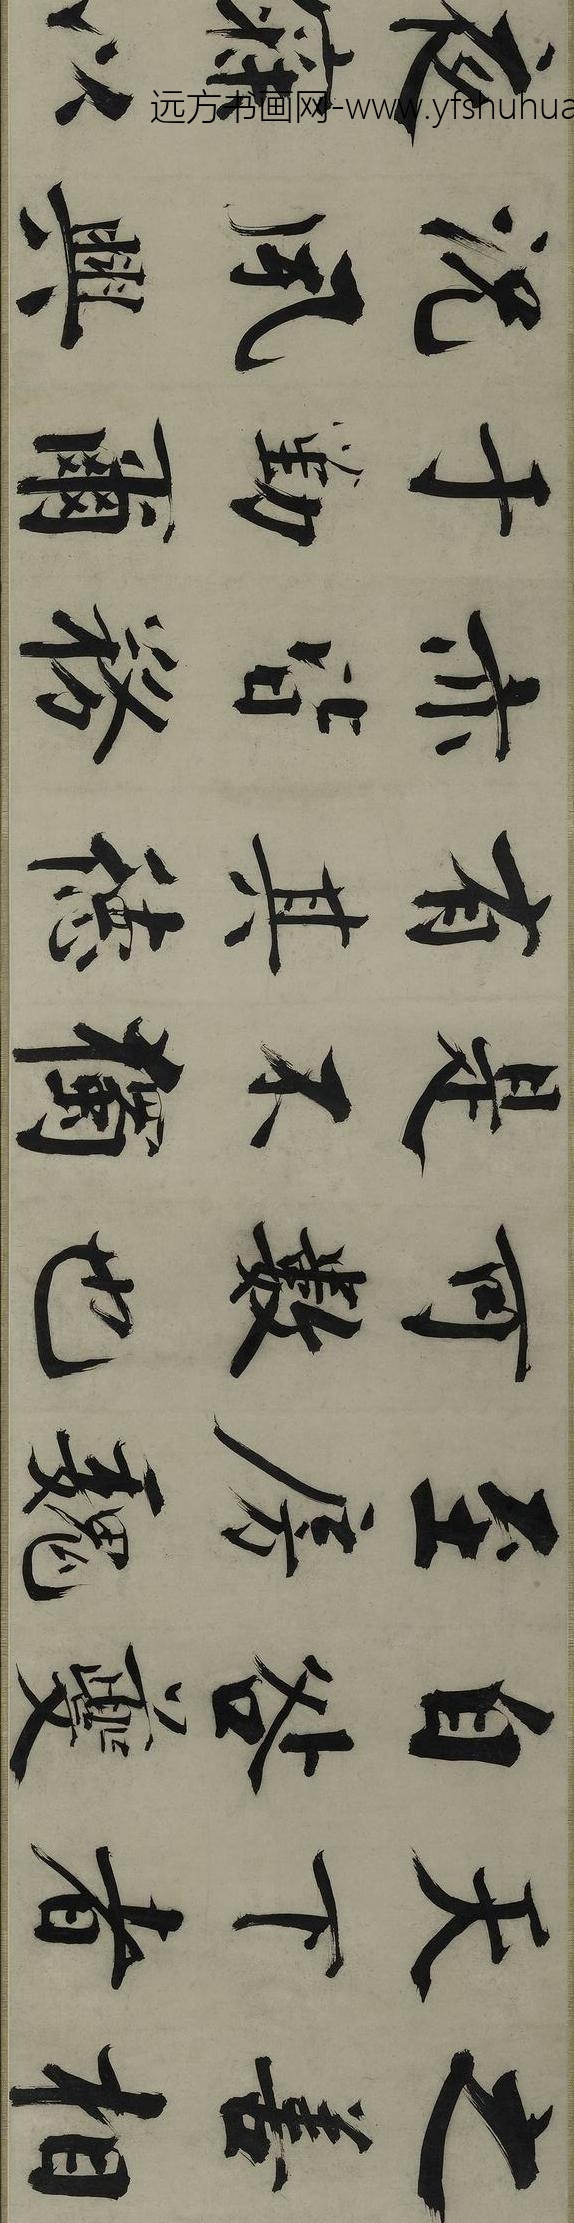 之善相
天下者
自咎夔
至房魏
可數也
是不獨
有其德
亦皆務
于勤爾
況夙興
夜寐以
远方书画网-www.yfshuhua